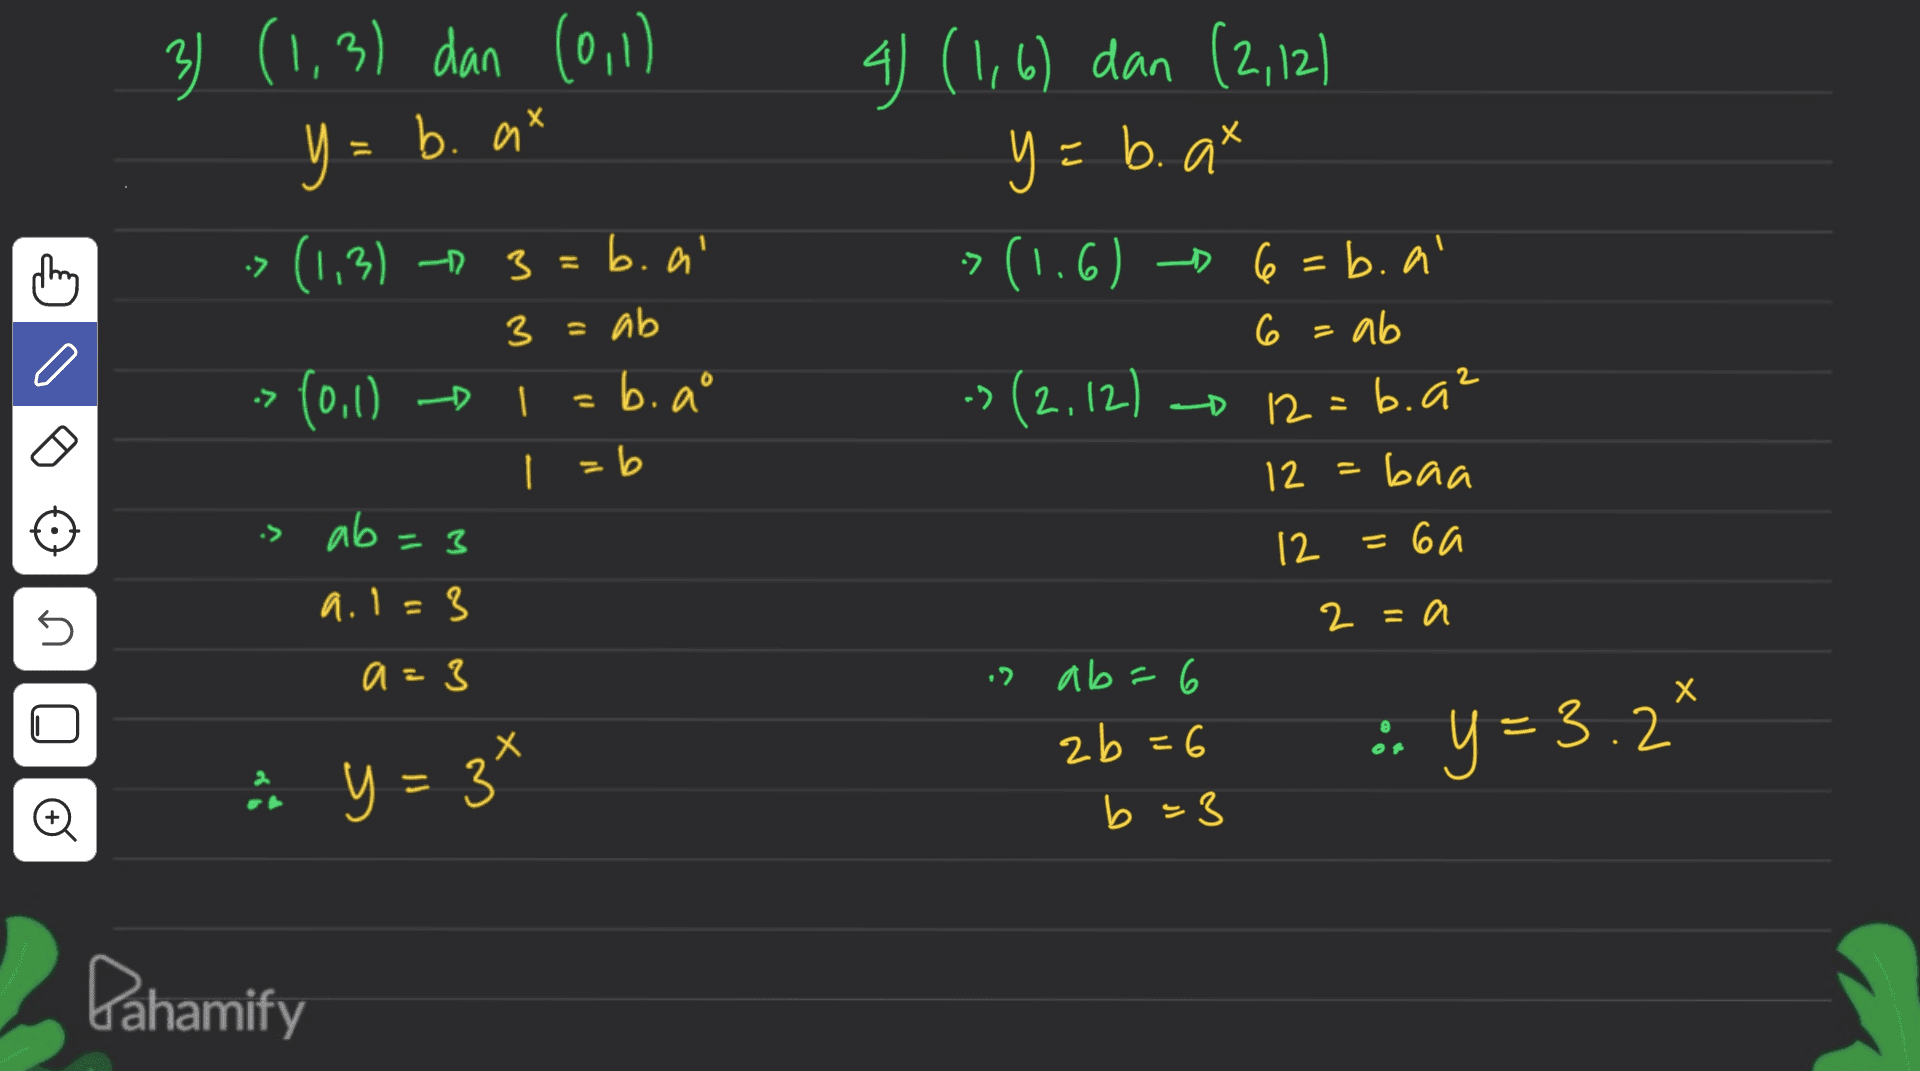 3) (1,3) dan (0,1)
y = b. aˣ
-> (1,3) → 3 = b. a¹
3 = ab
-> (0,1) → 1 = b. a⁰
1 = b
-> ab = 3
a. 1 = 3
a = 3
∴ y = 3ˣ
4) (1,6) dan (2,12)
y = b. aˣ
-> (1.6) → 6 = b. a¹
6 = ab
-> (2,12) → 12 = b. a²
12 = baa
12 = 6a
2 = a
-> ab = 6
2b = 6
b = 3
∴ y = 3.2ˣ
Pahamify